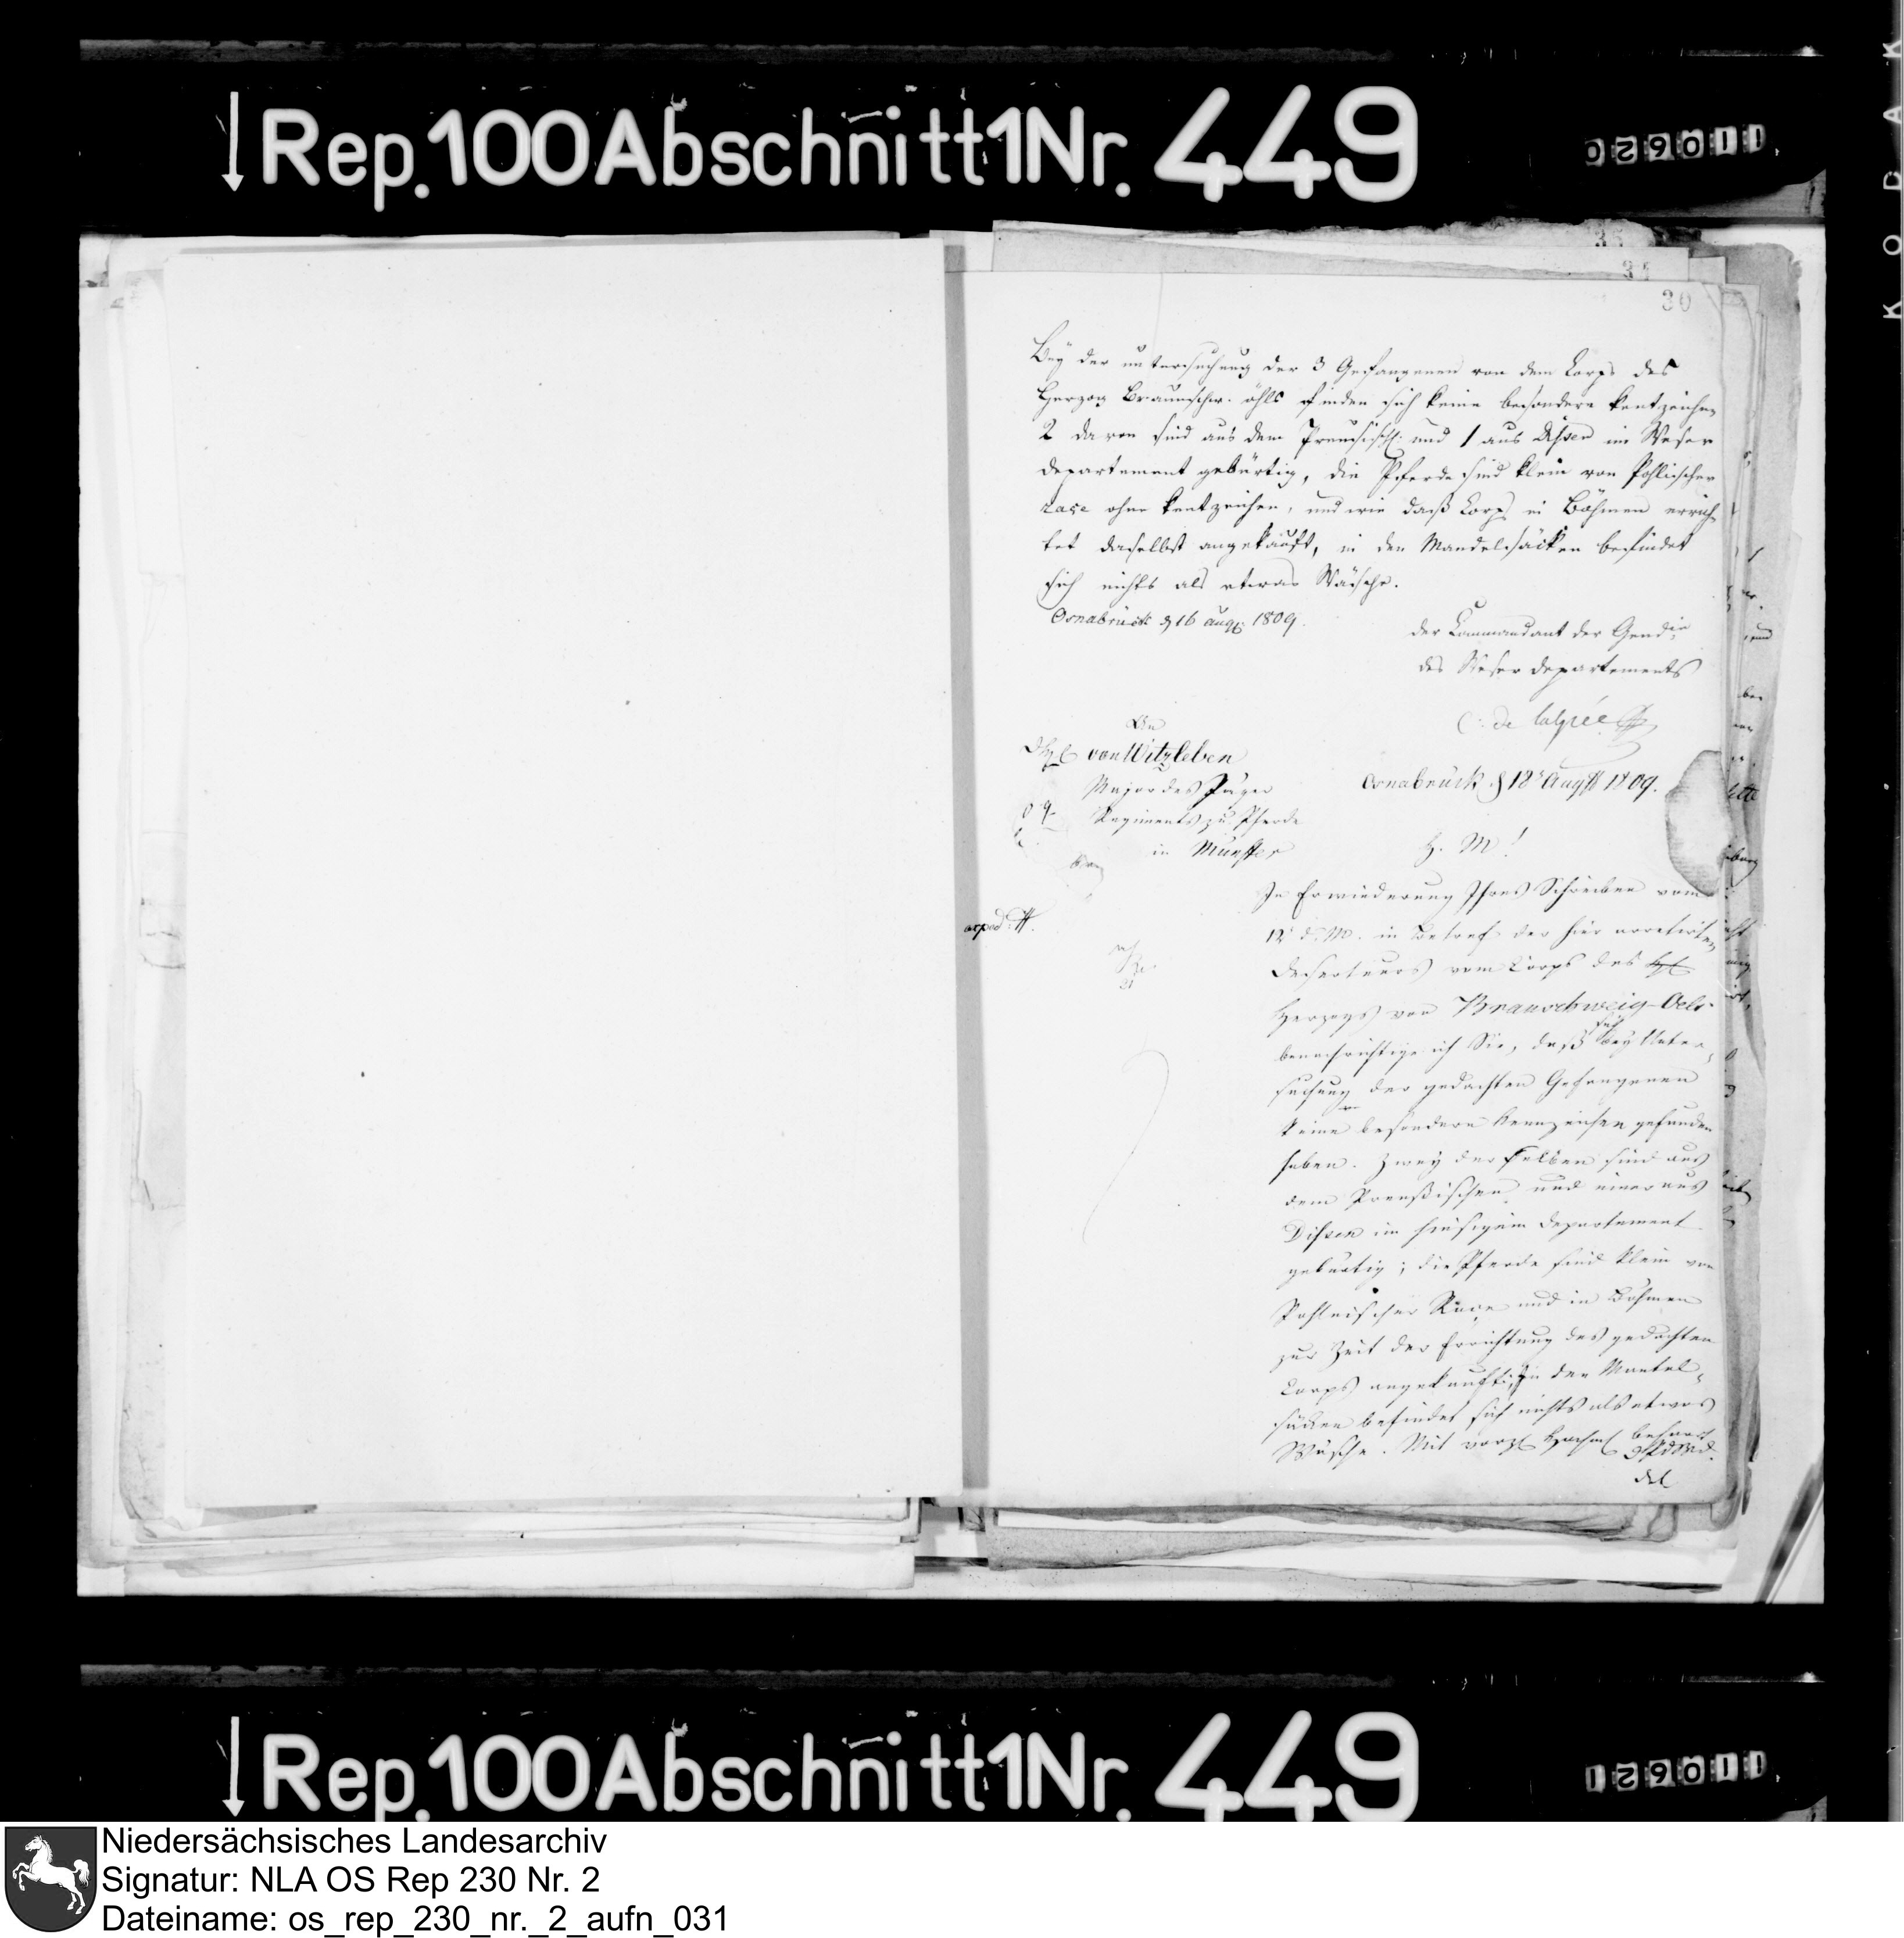 Rep. 100 Abschnitt 1 Nr. 449
30
Bey der untersuchung der 3 Gefangenen von dem Corps des
Herzog Braunschw. öhls finden sich keine besondere kentzeichen
2 davon sind aus dem Preusischl. und 1 aus Dissen im Weser
departement gebürtig, die Pferde sind klein von Pohlischer
race ohne kentzeichen, und wie daß Corps in Böhmen errich-
tet daselbst angekauft, in den Mandelsäcken befindet
sich nichts als etwas Wäsche.
Osnabrück d 16 aug. 1809.
der Commandant der Gend
des Weser departements
C: de
An
von Witzleben
Major des Jäger
Regiments zu Pferde
in Münster
expd.
Osnabrück d 18 Aug 1809.
H. M!
In Erwiederung Ihres Schreiben vom
12 d. M. in Betref der hier arretirten
Deserteurs vom Corps des
Herzogs von Braunschweig-Oels
benachrichtige ich Sie, daß sich bey Unter-
suchung der gedachten Gefangenen
keine besondere Kennzeichen gefunden
haben. Zwey derselben sind aus
dem Preußischen und einer aus
Dissen im hiesigem Departement
gebürtig; die Pferde sind klein von
Pohlnischer Race und in Böhmen
zur Zeit der Errichtung des gedachten
Corps angekauft; In den Mantel-
säcken befindet sich nichts als etwas
Wäsche. Mit vorzl Hochach beharrt
Rep. 100 Abschnitt 1 Nr. 449
Niedersächsisches Landesarchiv
Signatur: NLA OS Rep 230 Nr. 2
Dateiname: os_rep_230_nr._2_aufn_031
KODAK